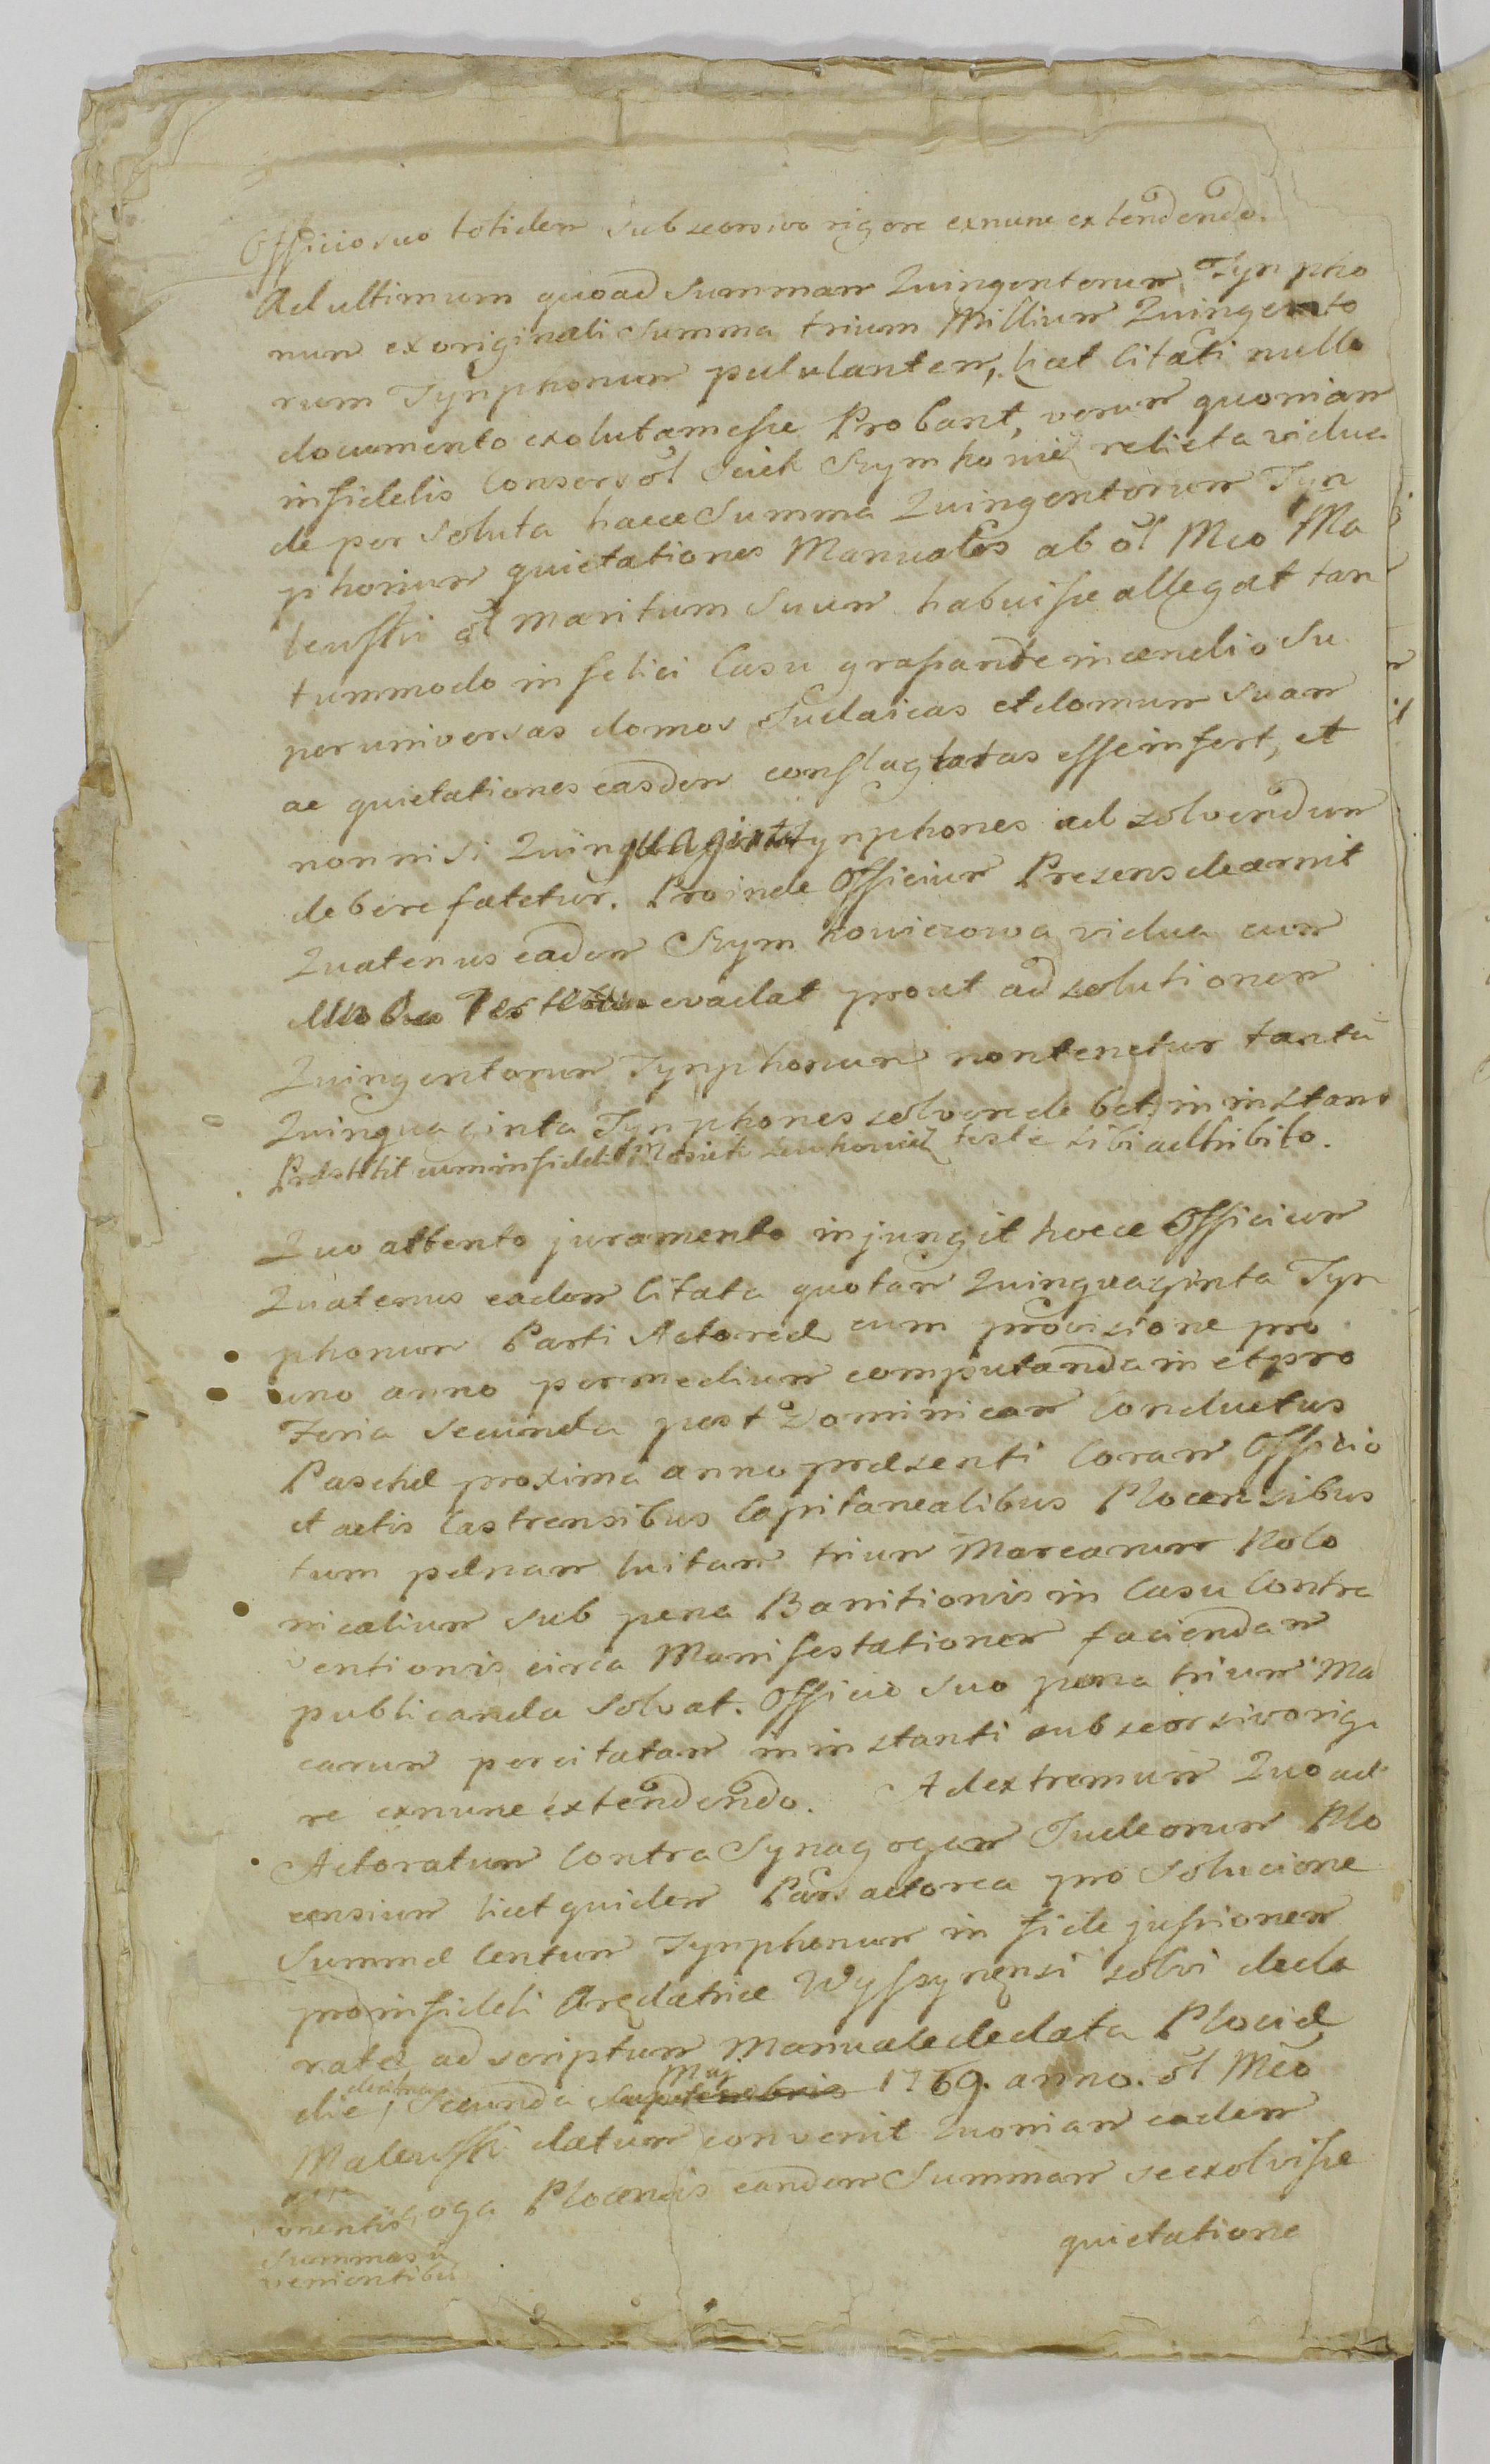 Officio suo totidem sub seorsivo rigore exnunc extendendo.
Ad ultimum quoad Summam Quingentorum Tynpho
num ex originali Summa trium Millium Quingento
rum Tynphonum pululantem, licet Citati nullo
documento exolutam esse Probant, verum quoniam
infidelis Conserv ol Sciek Szymkowicz relicta vidua
de per soluta hacce Summa Quingentorum Tyn
phonum quietationes Manuales ab ol Mco Ma
leuski ol maritum Suum habuisse allegat tan
tummodo infelici Casu grassante incendio Su
per universas domos Judaicas et domum suam
ac quietationes easdem conflagratas esse infert, et
non nisi Quinquaginta tynphones ad solvendum
debere fatetur. Proinde Officium Presens decernit
Quatenus eadem Szymkowiczowa vidua cum
evadat prout ad solutionem
Quingentorum Tynphonum non tenetur tantu
Quinquaginta Tynphones solvere debet, in instans
Præstitit cum infideli teste sibi adhibito.
Quo attento juramento injungit hocce Officium
Quatenus eadem Citata quotam Quinquaginta Tyn
phonum Parti Actoreæ cum provisione pro
uno anno per medium computanda in et pro
Feria Secunda post Dominicam Conductus
Paschæ proxima anno præsenti Coram Officio
et actis Castrensibus Capitanealibus Plocensibus
tum pænam luitam trium Marcarum Polo
nicalium sub pena Banitionis in Casu Contra
ventionis circa Manifestationem faciendam
publicanda Solvat. Officio Suo pena trium Ma
carum per citatam in instanti sub seorsivo rigo
re exnunc extendendo. Ad extremum Quoad
Actoratum Contra Synagogam Judeorum Plo
censium licet quidem Pars actorea pro Solucione
Summæ Centum Tynphonum in fide jussionem
pro infideli Arędatrice Wyszynensi solvi decla
ratæ ad scriptum Manuale de data Plociæ
die decima Secunda Septembris Maj 1769. anno. ol Mco
Maleuski datum convenit Quoniam eadem
oga Plocensis eandem Summam se exolvisse
quietatione